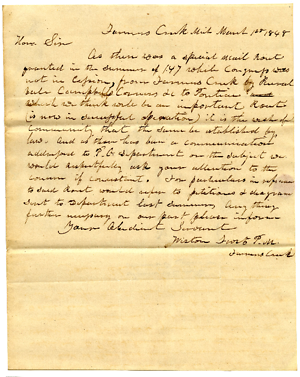 Farmers Creek Mich March 1st 1848
Hon. Sir
As there was a special mail Rout
granted in the summer of 1847 whilst Congress was
not in Session, from Farmers Creek by Rural
vale Campbells Corners &c to Pontiac
which we think will be an important Route
(is now in successful operation) it is the wish of
community that the same be established by
law. And as there has been a communication
addressed to P.O Department on the subject we
would respectfully ask your attention to the
concern if consistant. For particulars in reference
to said Rout would refer to petitions & diagram
sent to Department last summer. Any thing
further necessary on our part please inform
Your Obedient Servant
P.M.
Farmers Creek